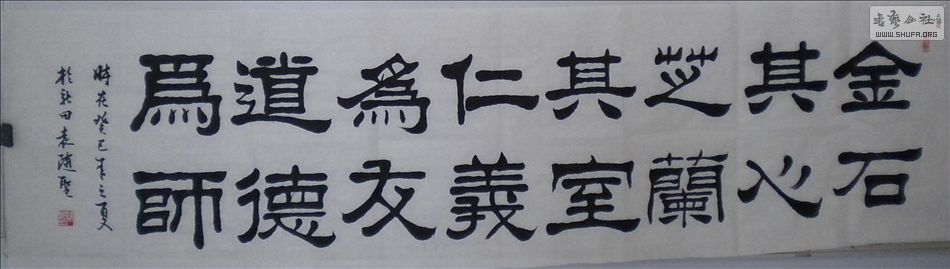 金石
其心
芝蘭
其室
仁義
為友
道德
爲師
時在癸巳年之夏
於田袁随
書藝公社
WWW.SHUFA.ORG